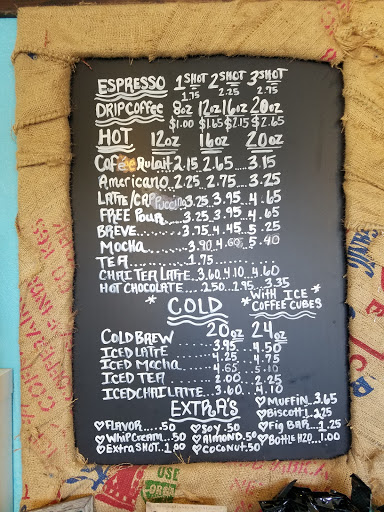 ESPRESSO 1 SHOT 2 SHOT 3 SHOT
1.75 2.25 2.75
DRIPCOFFEE 8oz 12oz 16oz 20oz
$1.00 $1.65 $2.15 $2.65
HOT 12oz 16oz 20oz
Café Aulait 2.15 2.65 3.15
Americano 2.25 2.75 3.25
LATTE/CAPPuccino 3.25 3.95 4.65
FREE Pour 3.25 3.95 4.65
BREVE 3.75 4.45 5.25
Mocha 3.90 4.60 5.40
TEA 1.75
CHAI TEA LATTE 3.60 4.10 4.60
HOT CHOCOLATE 2.50 2.95 3.35
* COLD * WITH ICE *
COFFEE CUBES
20oz 24oz
COLD BREW 3.95 4.50
ICED LATTE 4.25 4.75
ICED Mocha 4.65 5.10
ICED TEA 2.00 2.25
ICED CHAI LATTE 3.60 4.10
EXTRA'S
♡FLAVOR.....50 ♡SOY.50
♡WHIPCREAM..50 ♡ALMOND.50
♡EXTRA SHOT.1.00 ♡COCONUT.50
♡MUFFIN 3.65
♡Biscotti 2.25
♡Fig BAR..1.25
♡Bottle H2O..1.00
USE